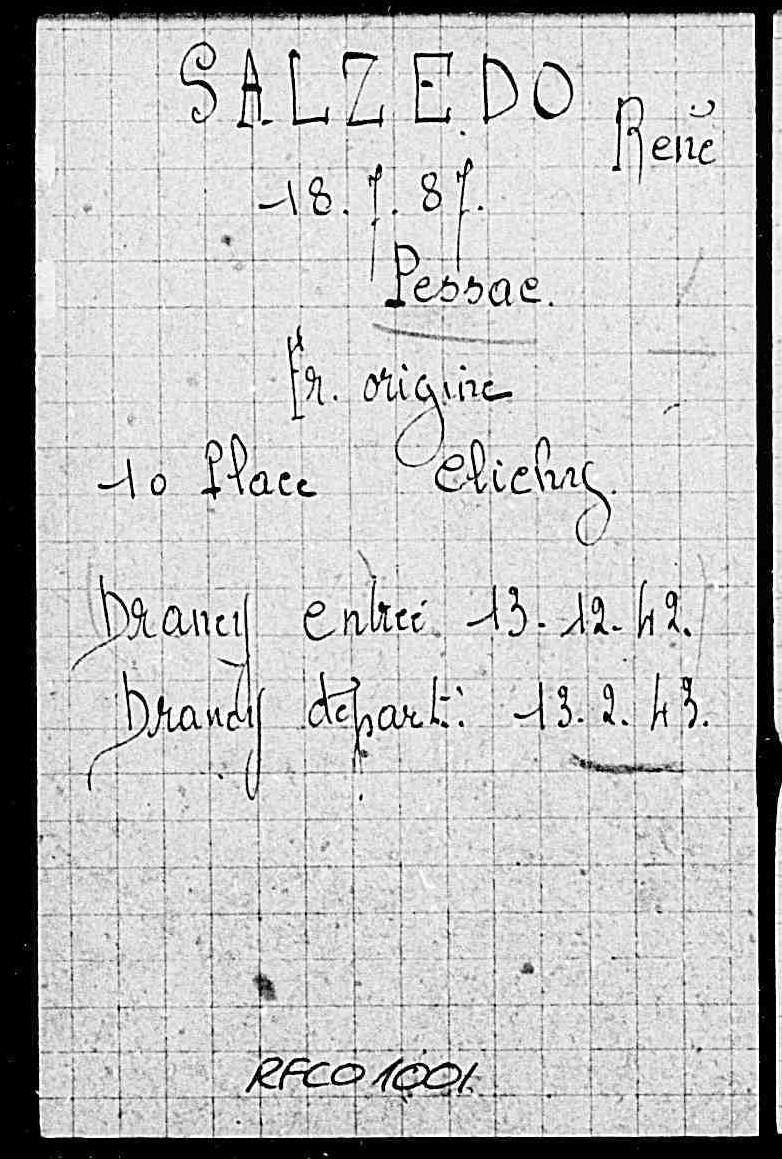 SALZEDO René
18.7.87.
Pessac.
Fr. origine
10 Place Clichy.
Drancy entrée 13.12.42.
Drancy départ: 13.2.43.
RFCO 1001